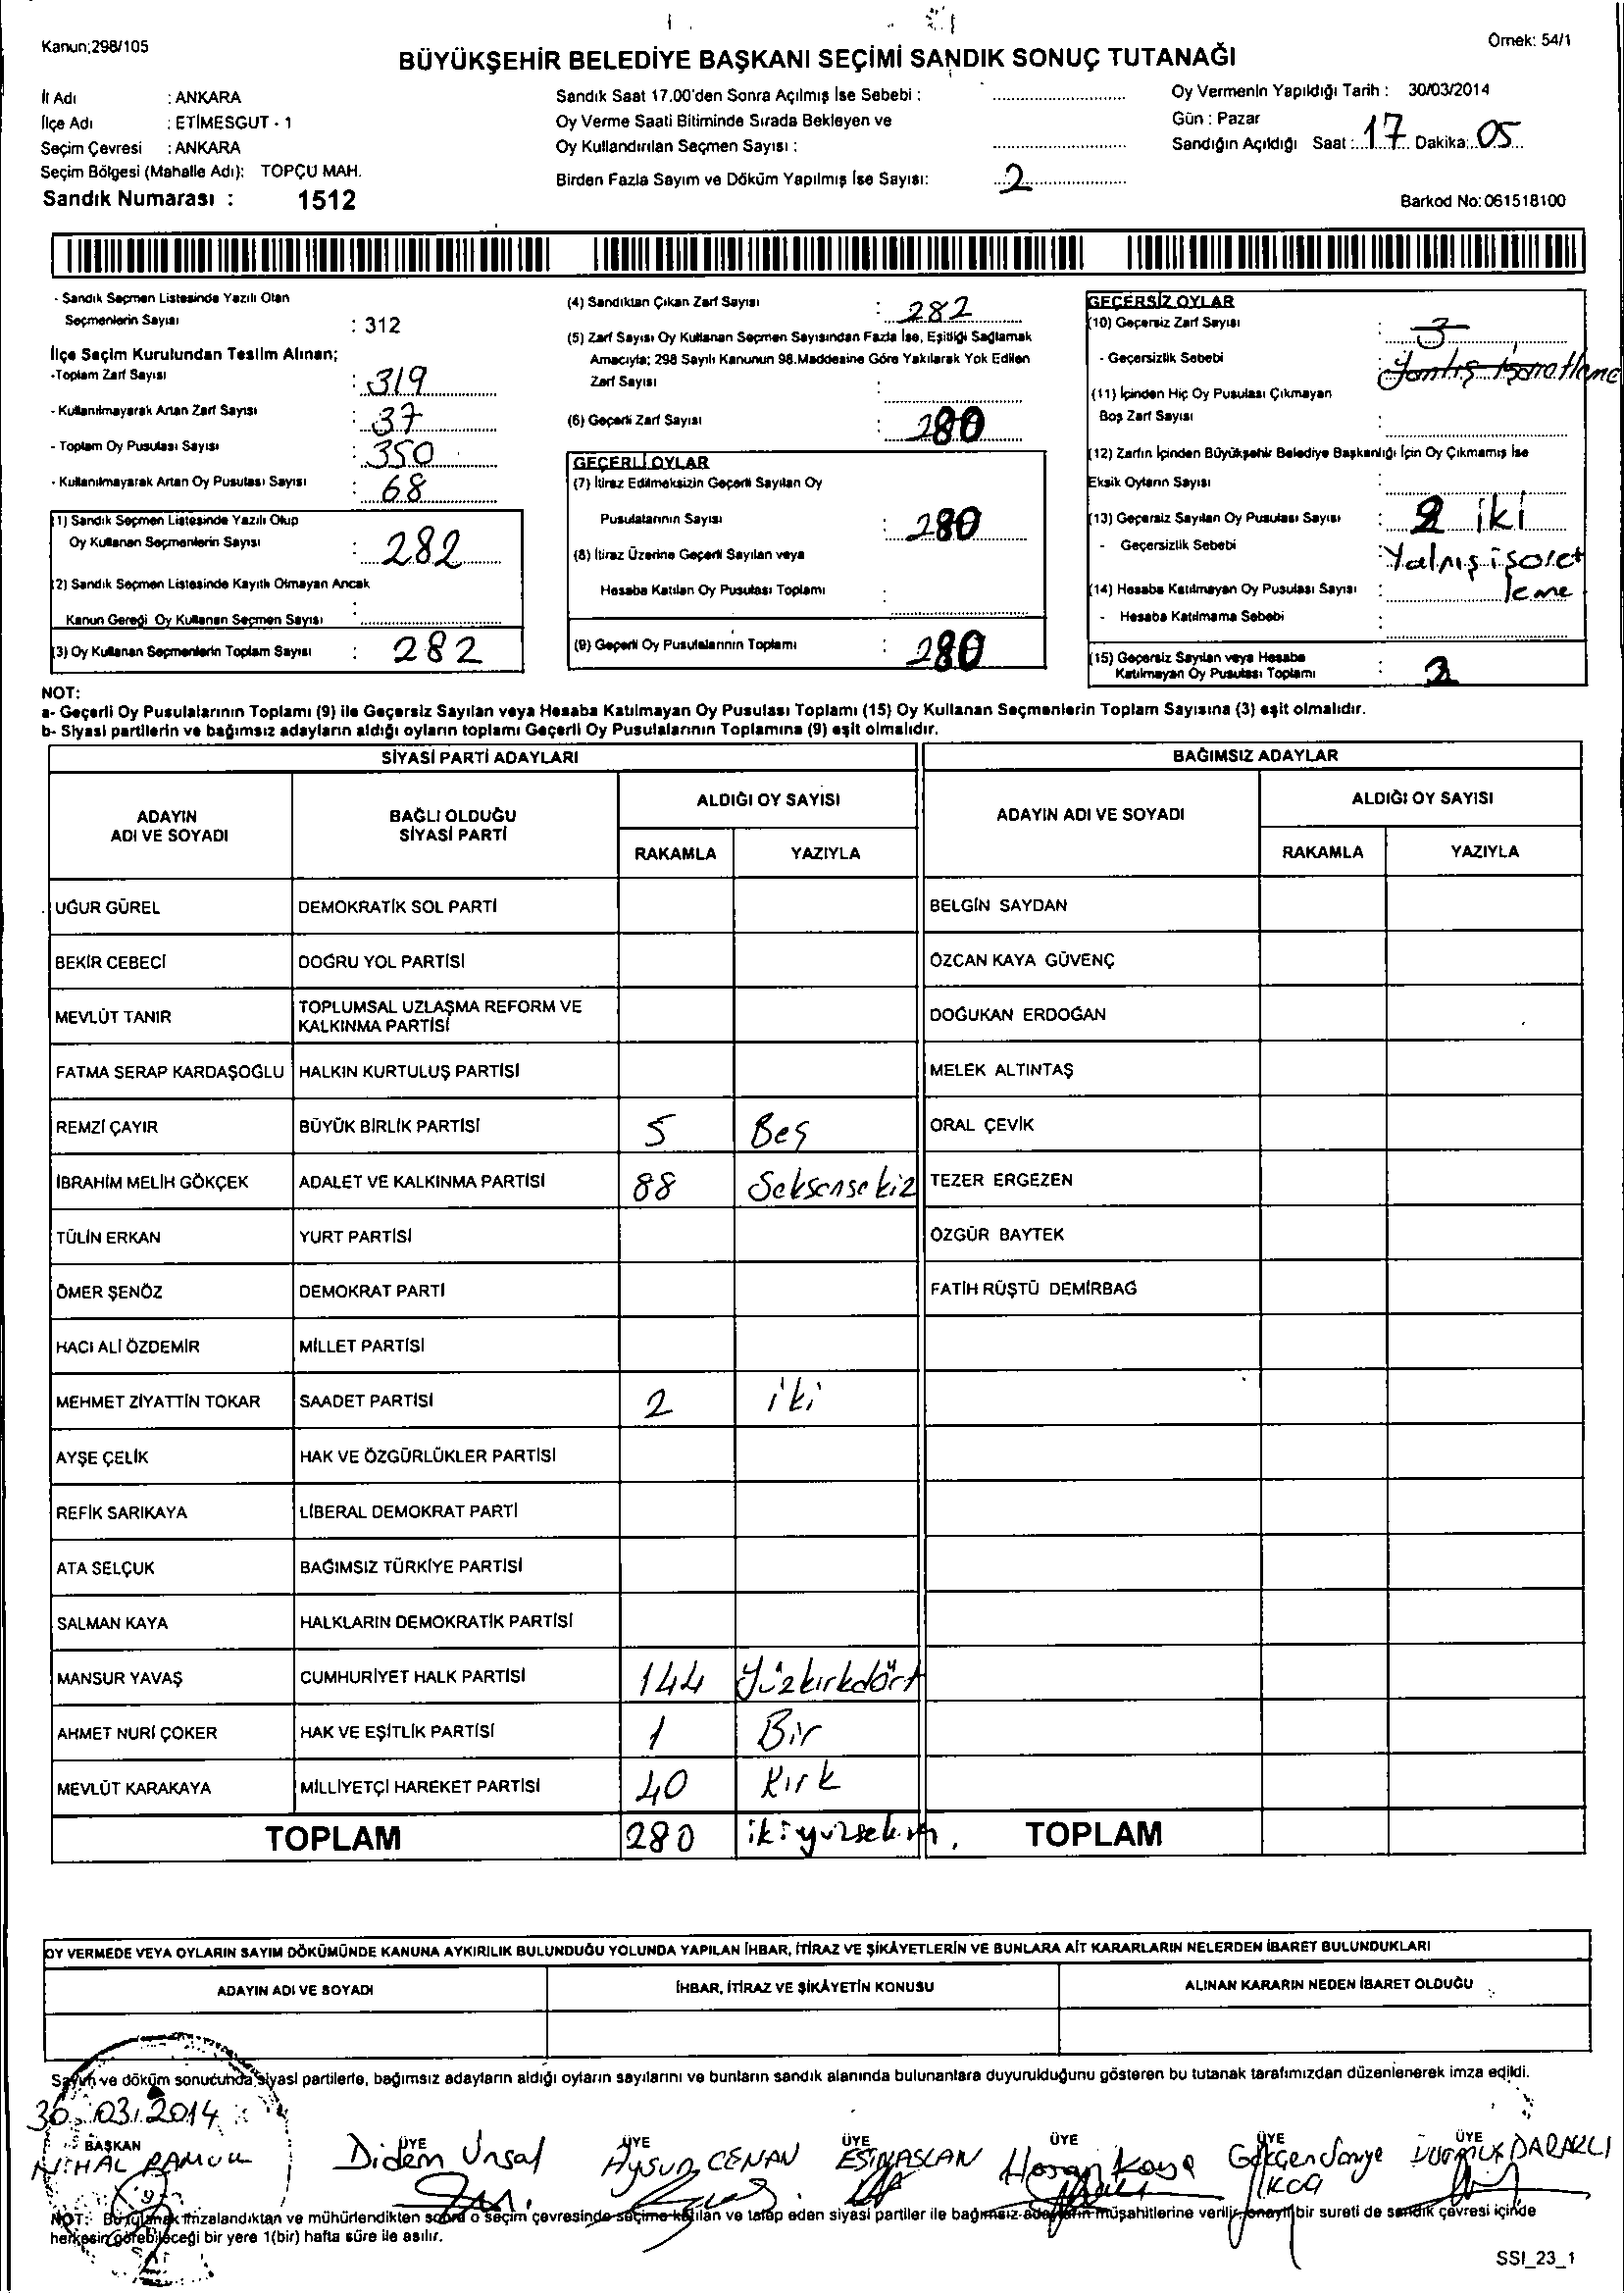 Kanun;298/105
Örnek: 54/1
BÜYÜKŞEHİR BELEDİYE BAŞKANI SEÇİMİ SANDIK SONUÇ TUTANAĞI
İl Adı : ANKARA
İlçe Adı : ETİMESGUT - 1
Seçim Çevresi : ANKARA
Seçim Bölgesi (Mahalle Adı): TOPÇU MAH.
Sandık Numarası : 1512
Sandık Saat 17.00'den Sonra Açılmış İse Sebebi :
Oy Verme Saati Bitiminde Sırada Bekleyen ve
Oy Kullandırılan Seçmen Sayısı :
Birden Fazla Sayım ve Döküm Yapılmış İse Sayısı: 2
Oy Vermenin Yapıldığı Tarih : 30/03/2014
Gün : Pazar
Sandığın Açıldığı Saat : 17 Dakika: 05
Barkod No: 061518100
- Sandık Seçmen Listesinde Yazılı Olan
Seçmenlerin Sayısı : 312
İlçe Seçim Kurulundan Teslim Alınan;
-Toplam Zarf Sayısı : 319
- Kullanılmayarak Artan Zarf Sayısı : 37
- Toplam Oy Pusulası Sayısı : 350
- Kullanılmayarak Artan Oy Pusulası Sayısı : 68
(1) Sandık Seçmen Listesinde Yazılı Olup
Oy Kullanan Seçmenlerin Sayısı : 282
(2) Sandık Seçmen Listesinde Kayıtlı Olmayan Ancak
Kanun Gereği Oy Kullanan Seçmen Sayısı :
(3) Oy Kullanan Seçmenlerin Toplam Sayısı : 282
(4) Sandıktan Çıkan Zarf Sayısı : 282
(5) Zarf Sayısı Oy Kullanan Seçmen Sayısından Fazla İse, Eşitliği Sağlamak
Amacıyla; 298 Sayılı Kanunun 98.Maddesine Göre Yakılarak Yok Edilen
Zarf Sayısı :
(6) Geçerli Zarf Sayısı : 280
GEÇERLİ OYLAR
(7) İtiraz Edilmeksizin Geçerli Sayılan Oy
Pusulalarının Sayısı : 280
(8) İtiraz Üzerine Geçerli Sayılan veya
Hesaba Katılan Oy Pusulası Toplamı :
(9) Geçerli Oy Pusulalarının Toplamı : 280
GEÇERSİZ OYLAR
(10) Geçersiz Zarf Sayısı : 3
- Geçersizlik Sebebi : Yanlış işaretleme
(11) İçinden Hiç Oy Pusulası Çıkmayan
Boş Zarf Sayısı :
(12) Zarfın İçinden Büyükşehir Belediye Başkanlığı İçin Oy Çıkmamış İse
Eksik Oyların Sayısı :
(13) Geçersiz Sayılan Oy Pusulası Sayısı : 2 iki
- Geçersizlik Sebebi : Yalnış işaret
leme
(14) Hesaba Katılmayan Oy Pusulası Sayısı :
- Hesaba Katılmama Sebebi :
(15) Geçersiz Sayılan veya Hesaba
Katılmayan Oy Pusulası Toplamı : 2
NOT:
a- Geçerli Oy Pusulalarının Toplamı (9) ile Geçersiz Sayılan veya Hesaba Katılmayan Oy Pusulası Toplamı (15) Oy Kullanan Seçmenlerin Toplam Sayısına (3) eşit olmalıdır.
b- Siyasi partilerin ve bağımsız adayların aldığı oyların toplamı Geçerli Oy Pusulalarının Toplamına (9) eşit olmalıdır.
SİYASİ PARTİ ADAYLARI BAĞIMSIZ ADAYLAR
ADAYIN ADI VE SOYADI BAĞLI OLDUĞU SİYASİ PARTİ ALDIĞI OY SAYISI ADAYIN ADI VE SOYADI ALDIĞI OY SAYISI
RAKAMLA YAZIYLA RAKAMLA YAZIYLA
UĞUR GÜREL DEMOKRATİK SOL PARTİ BELGİN SAYDAN
BEKİR CEBECİ DOĞRU YOL PARTİSİ ÖZCAN KAYA GÜVENÇ
MEVLÜT TANIR TOPLUMSAL UZLAŞMA REFORM VE KALKINMA PARTİSİ DOĞUKAN ERDOĞAN
FATMA SERAP KARDAŞOĞLU HALKIN KURTULUŞ PARTİSİ MELEK ALTINTAŞ
REMZİ ÇAYIR BÜYÜK BİRLİK PARTİSİ 5 Beş ORAL ÇEVİK
İBRAHİM MELİH GÖKÇEK ADALET VE KALKINMA PARTİSİ 88 Seksensekiz TEZER ERGEZEN
TÜLİN ERKAN YURT PARTİSİ ÖZGÜR BAYTEK
ÖMER ŞENÖZ DEMOKRAT PARTİ FATİH RÜŞTÜ DEMİRBAĞ
HACI ALİ ÖZDEMİR MİLLET PARTİSİ
MEHMET ZİYATTİN TOKAR SAADET PARTİSİ 2 iki
AYŞE ÇELİK HAK VE ÖZGÜRLÜKLER PARTİSİ
REFİK SARIKAYA LİBERAL DEMOKRAT PARTİ
ATA SELÇUK BAĞIMSIZ TÜRKİYE PARTİSİ
SALMAN KAYA HALKLARIN DEMOKRATİK PARTİSİ
MANSUR YAVAŞ CUMHURİYET HALK PARTİSİ 144 Yüzkırkdört
AHMET NURİ ÇOKER HAK VE EŞİTLİK PARTİSİ 1 Bir
MEVLÜT KARAKAYA MİLLİYETÇİ HAREKET PARTİSİ 40 Kırk
TOPLAM 280 ikiyüzseksen TOPLAM
OY VERMEDE VEYA OYLARIN SAYIM DÖKÜMÜNDE KANUNA AYKIRILIK BULUNDUĞU YOLUNDA YAPILAN İHBAR, İTİRAZ VE ŞİKÂYETLERİN VE BUNLARA AİT KARARLARIN NELERDEN İBARET BULUNDUKLARI
ADAYIN ADI VE SOYADI İHBAR, İTİRAZ VE ŞİKÂYETİN KONUSU ALINAN KARARIN NEDEN İBARET OLDUĞU
Sayım ve döküm sonucunda siyasi partilerle, bağımsız adayların aldığı oyların sayılarını ve bunların sandık alanında bulunanlara duyurulduğunu gösteren bu tutanak tarafımızdan düzenlenerek imza edildi.
30.03.2014
BAŞKAN ÜYE ÜYE ÜYE ÜYE ÜYE ÜYE
NİHAL PAMUK Didem Ünsal Aysun CENAN ESİN ASLAN Hasan Kaya DARAKLI
NOT: Bu tutanak imzalandıktan ve mühürlendikten sonra o seçim çevresinde seçime katılan ve talep eden siyasi partiler ile bağımsız adayların müşahitlerine verilir, onaylı bir sureti de sandık çevresi içinde
herkesin görebileceği bir yere 1(bir) hafta süre ile asılır.
SSI_23_1